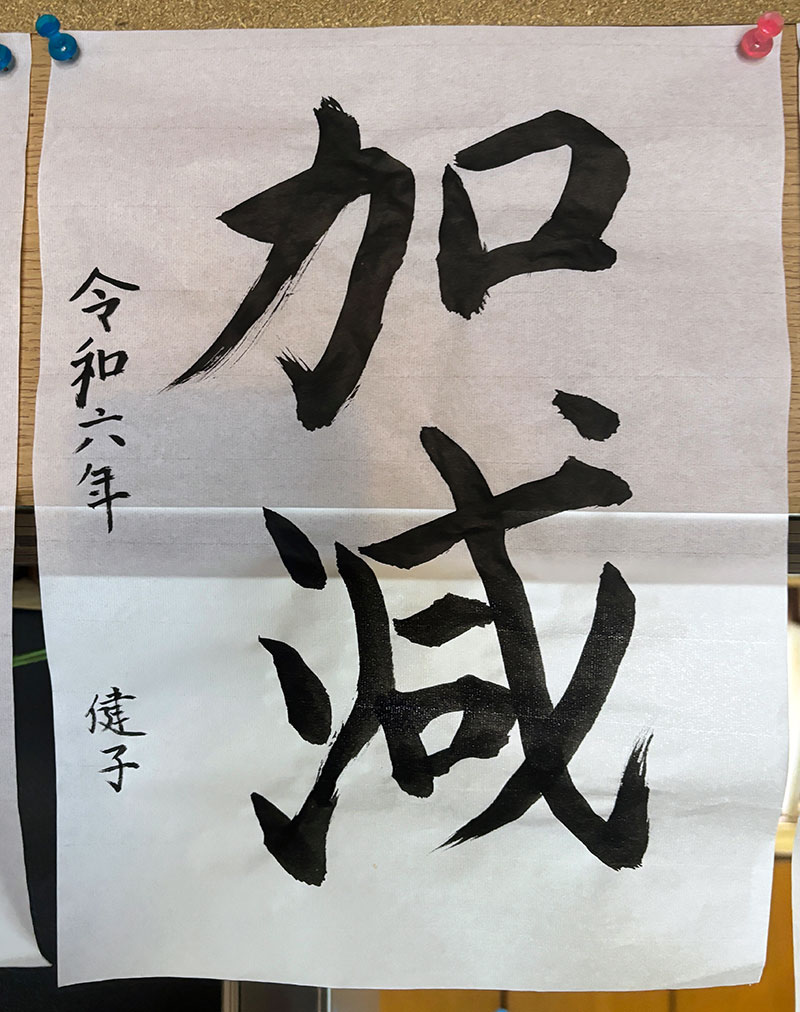 加減
令和六年
健子